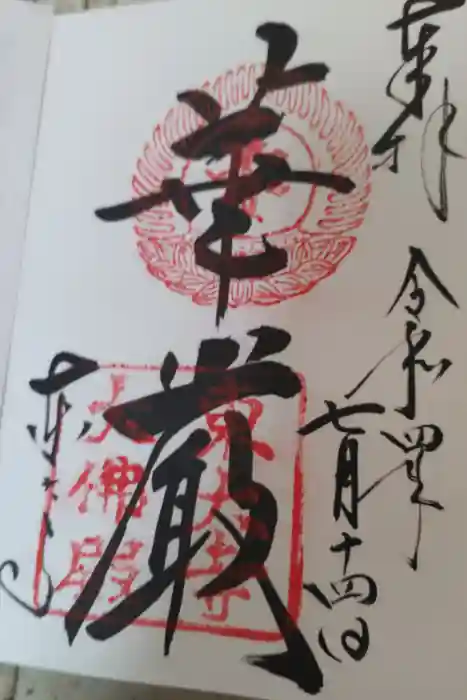 奉拝
令和四年
七月十四日
華厳
東大寺
大佛殿
東大寺